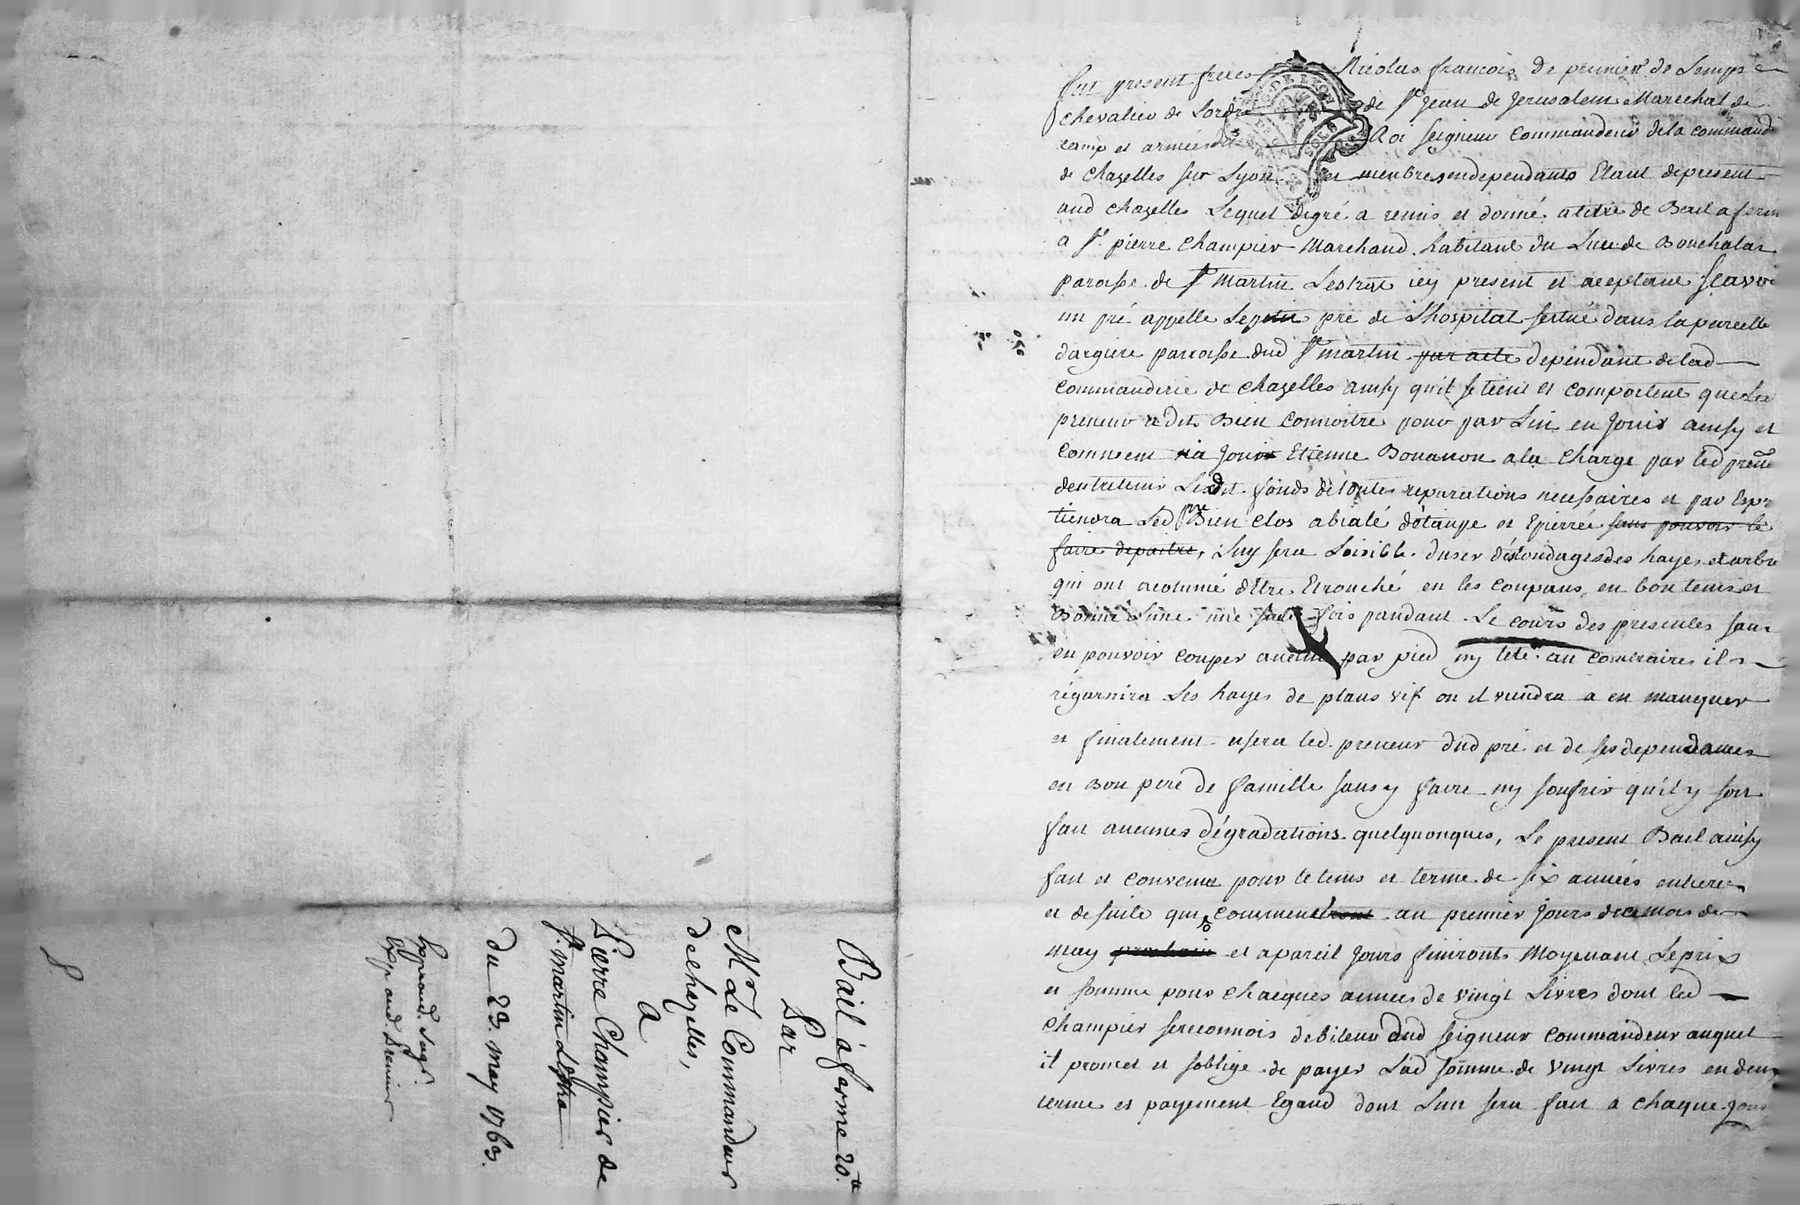 Bail à ferme 20tt
Par
Mr Le Commandeur
de chazelles,
a
Pierre Champier de
st. martin Lestra
du 23. may 1763.
Expand. Premier
fut present frere Nicolas francois De prunier de Lemps
chevalier de Lordre de st Jean de Jerusalem Marechal de
camp et armées du Roi seigneur Commandeur de la command
de chazelles sur Lyon et membres endependants Etant depresent
aud chazelle Lequel degré a remis et donné a titre de Bail a ferm
a sr. pierre Champier Marchand habitant du Lieu de Bouchalas
paroisse de st Martin Lestrat icy present et aceptant scavoir
un pré appellé Lepetit pré de Lhospital scitué dans laparcelle
dargiere parroisse dud st martin par acte dependant delad
commanderie de chazelles ainsy qu'il se tient et comportent que le
preneur a dit Bien Connoitre pour par Lui en Jouir ainsy et
comment a Joui Etienne Bonanon a la Charge par led preneur
dentretenir Ledit fonds de toutes reparations necessaires et par Exp
tiendra Led pré Bien clos abialé détaupé et Epierré sans pouvoir le
faire depaitre, Luy sera Loisible duser des tondages des hayes et arbre
qui ont acotumé dêtre Etronché en les coupans en bon tems et
Bonne Lune une seule fois pandant Le cours des presentes sans
en pouvoir couper aucun par pied ny tete au contraire il
régarnira Les hayes de plans vif ou il viendra a en manquer
et finalement usera led. preneur dud pré et de ses dependances
en Bon pere de famille sans y faire ny soufrir qu'il y soit
fait aucunes dégradations quelquonques, Le present Bail ainsy
fait et convenu pour le tems et terme de six années entieres
et de suite qui commenceront au premier Jours de ce mois de
may prochain et apareil Jours finiront Moyenant Leprix
et somme pour chacques années de vingt Livres dont led
Champier sereconnois debiteur dud seigneur Commandeur auquel
il promet et soblige de payer Lad somme de vingt Livres en deux
terme et payement Egaud dont Lun sera fait a chaque Jour